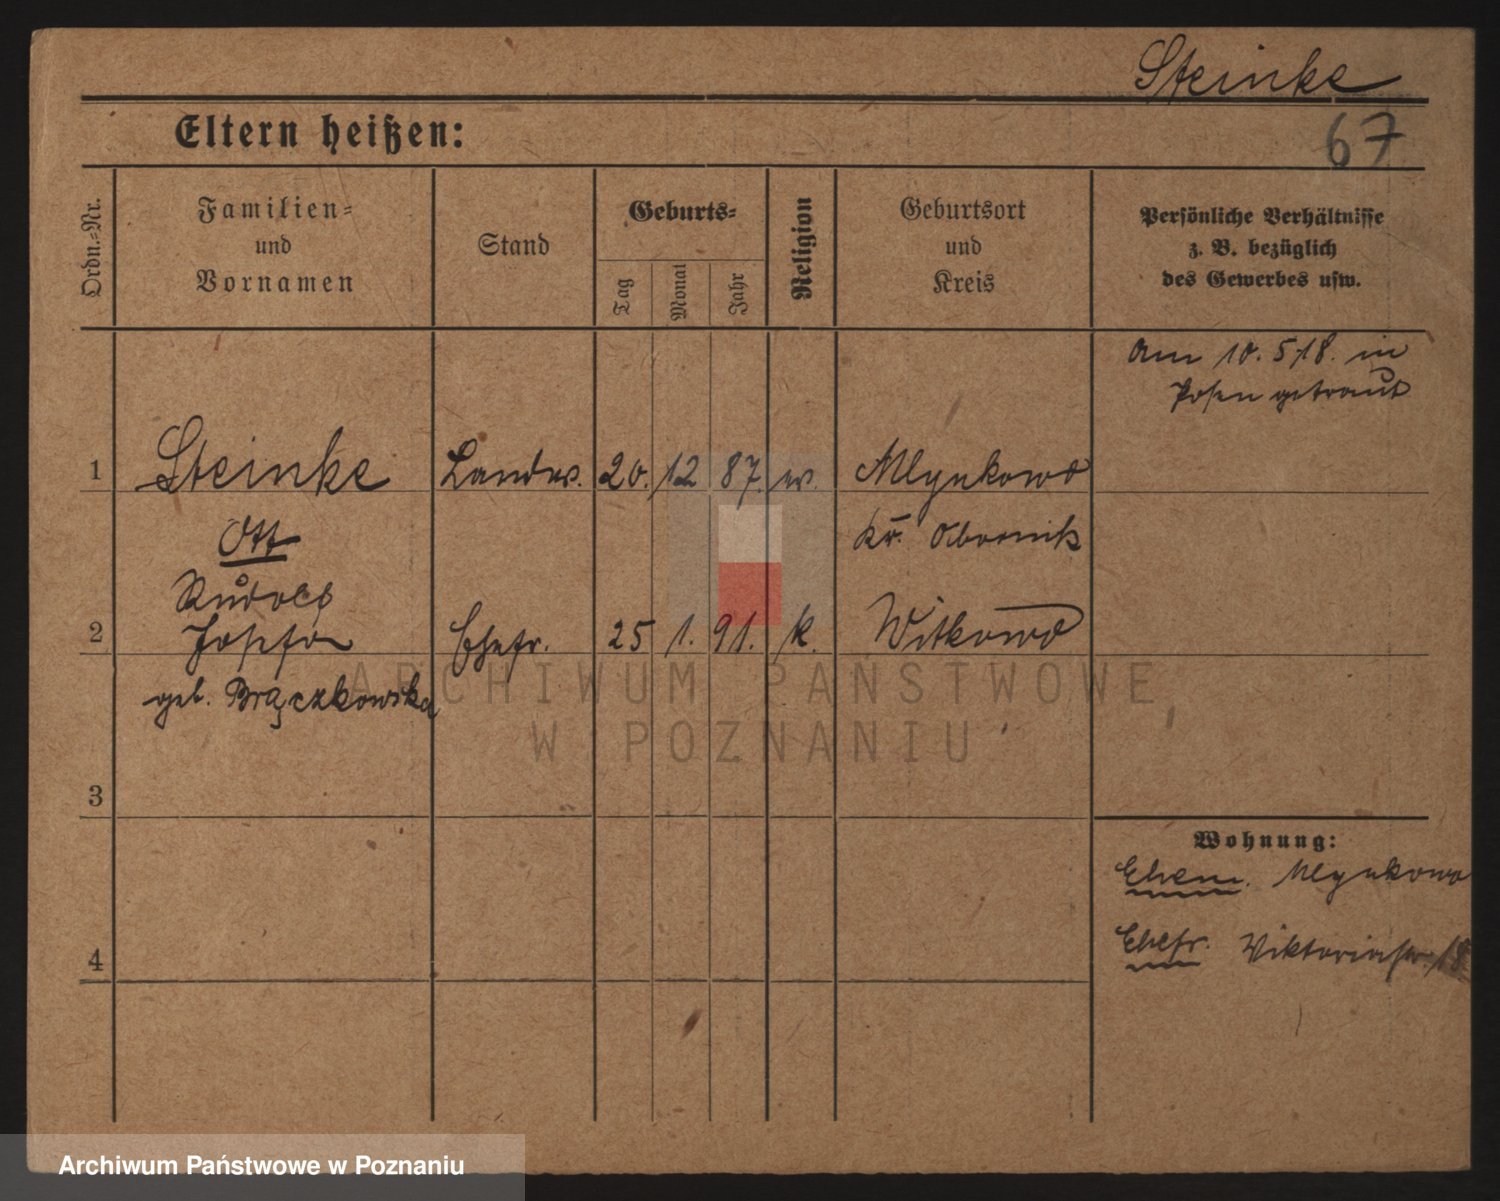 Steinke
Eltern heißen:
67
Ordn.-Nr.
Familien-
und
Vornamen
Stand
Geburts-
Tag
Monat
Jahr
Religion
Geburtsort
und
Kreis
Persönliche Verhältnisse
z. B. bezüglich
des Gewerbes usw.
Am 10. 5 18. in
Posen getraut
1 Steinke Landw. 20. 12 87. ev. Mlynkowo
Ott Kr. Obornik
Rudolf
2 Josefa Ehefr. 25 1. 91. k. Witkowo
geb. Brączkowska
3
4
Wohnung:
Ehem. Mlynkowo
Ehefr. Viktoriastr. 18
ARCHIWUM PAŃSTWOWE
W POZNANIU
Archiwum Państwowe w Poznaniu